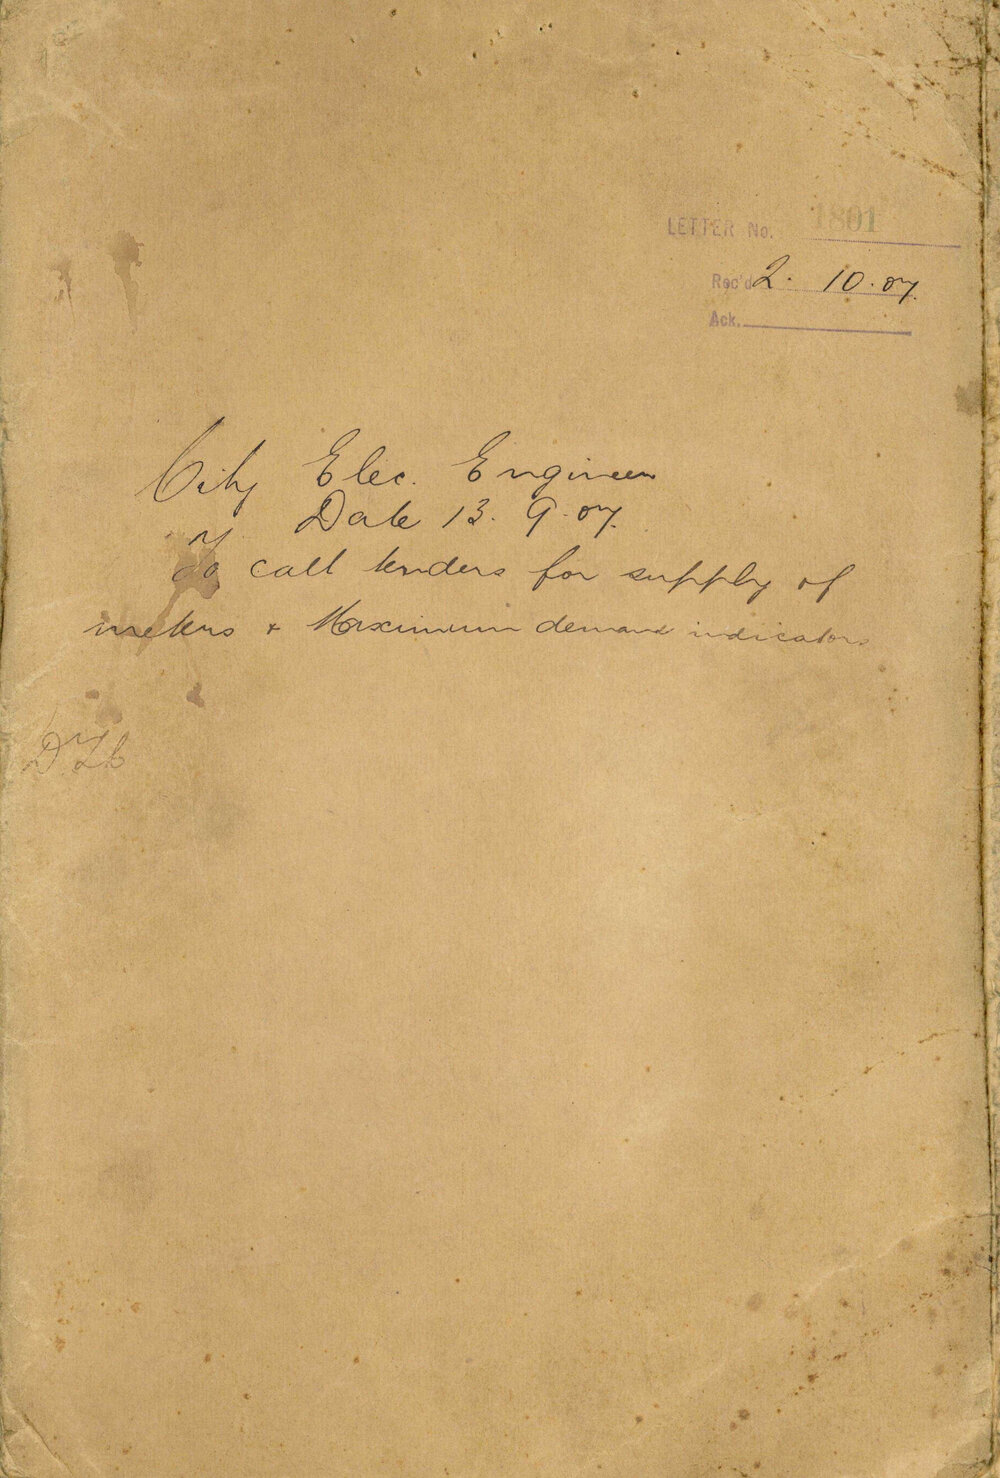 LETTER No. 1801
Rec'd 2. 10.07.
Ack.
City Elec. Engineer
Date 13. 9.07.
To call tenders for supply of
meters & Maximum demand indicators